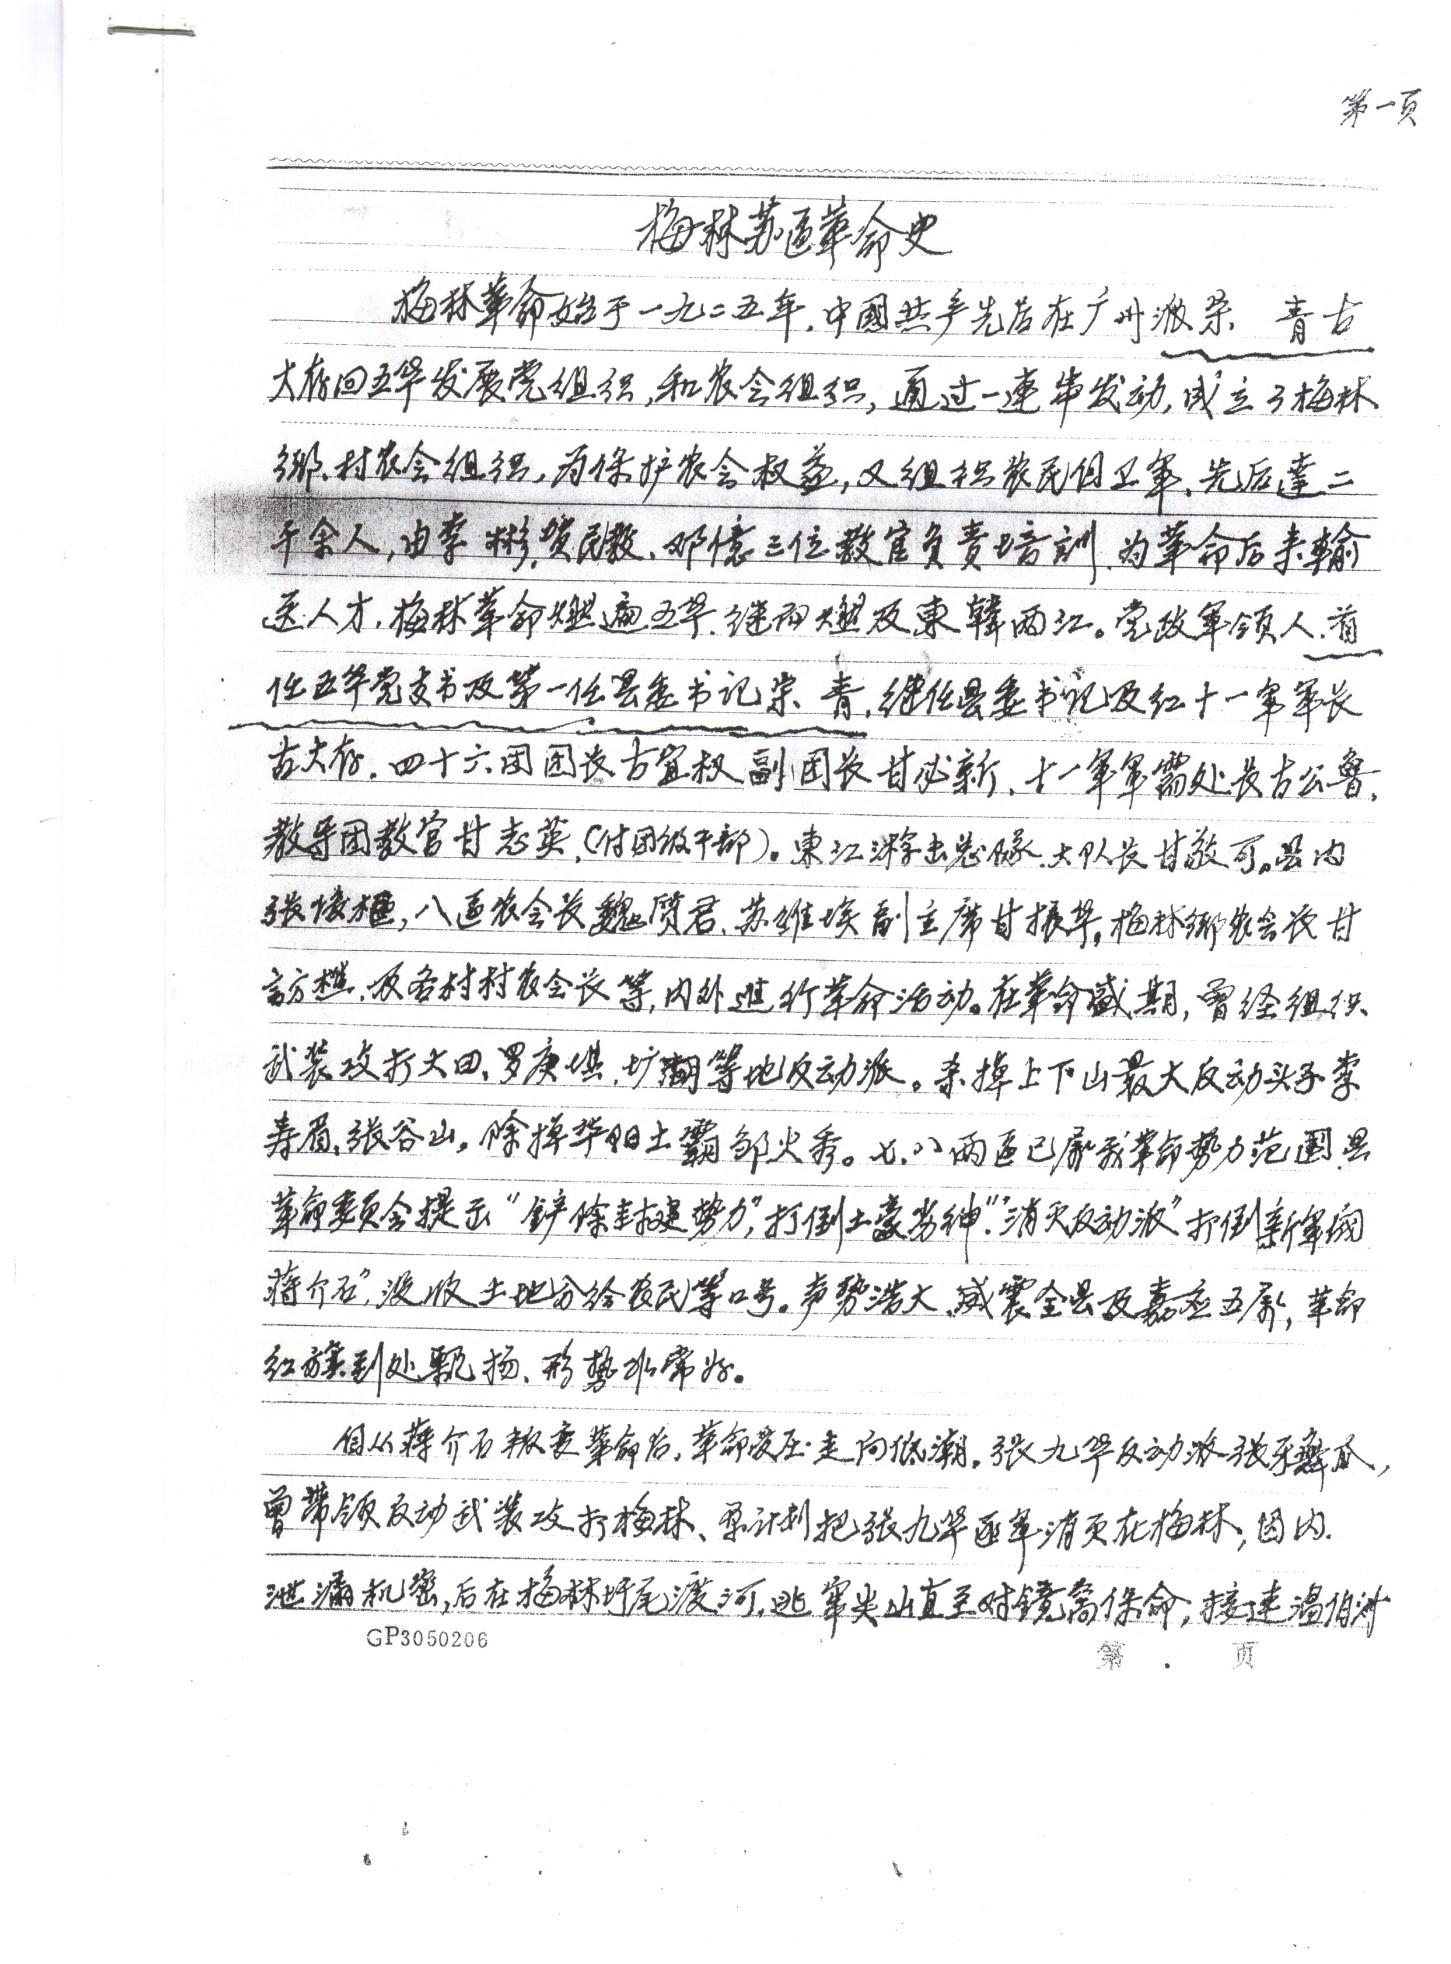 第一页
梅林苏区革命史
梅林革命始于一九二五年，中國共产先后在广州派宗 青古
大存回五华发展党组织，和农会组织，通过一連串发动，成立了梅林
鄉、村农会组织，为保护农会权益，又组织农民自卫军、先后達二
千余人，由李 彬，贺民教、邓億三位教官负责培訓，为革命后来輸
送人才，梅林革命燃遍五华，继而燃及東韓两江。党政军领人，首
任五华党支书及第一任县委书记宗 青，继任县委书记及红十一军军长
古大存，四十六团团长古宜权 副团长甘必新，十一军军需处长古公魯，
教导团教官甘志英，（付团级干部）。東江游击总隊，大队长甘敬可。县内
張 ，八區农会长魏质君，苏维埃副主席甘振华，梅林鄉农会长甘
访 ，及各村村农会长等，内外進行革命活动。在革命盛期，曾经组织
武装攻打大田、罗庚 、圹湖等地反动派。杀掉上下山最大反动头子李
寿眉，張谷山，除掉华阳土霸邹火秀。七、八两區已屬我革命势力范围，县
革命委员会提出“铲除封建势力”，“打倒土豪劣紳”“消灭反动派”打倒新军阀
蒋介石”，没收土地分给农民等口号。声势浩大，威震全县及嘉应五屬，革命
红旗到处飘扬、形势非常好。
自从蒋介石叛变革命后，革命受压走向低潮，張九华反动派張 爪，
曾带领反动武装攻打梅林、原计划把張九华匪军消灭在梅林，因内
泄漏机密，后在梅林圩尾渡河，逃窜尖山直至对镜窩保命，接連温伯洲
GP3050206
第 . 页